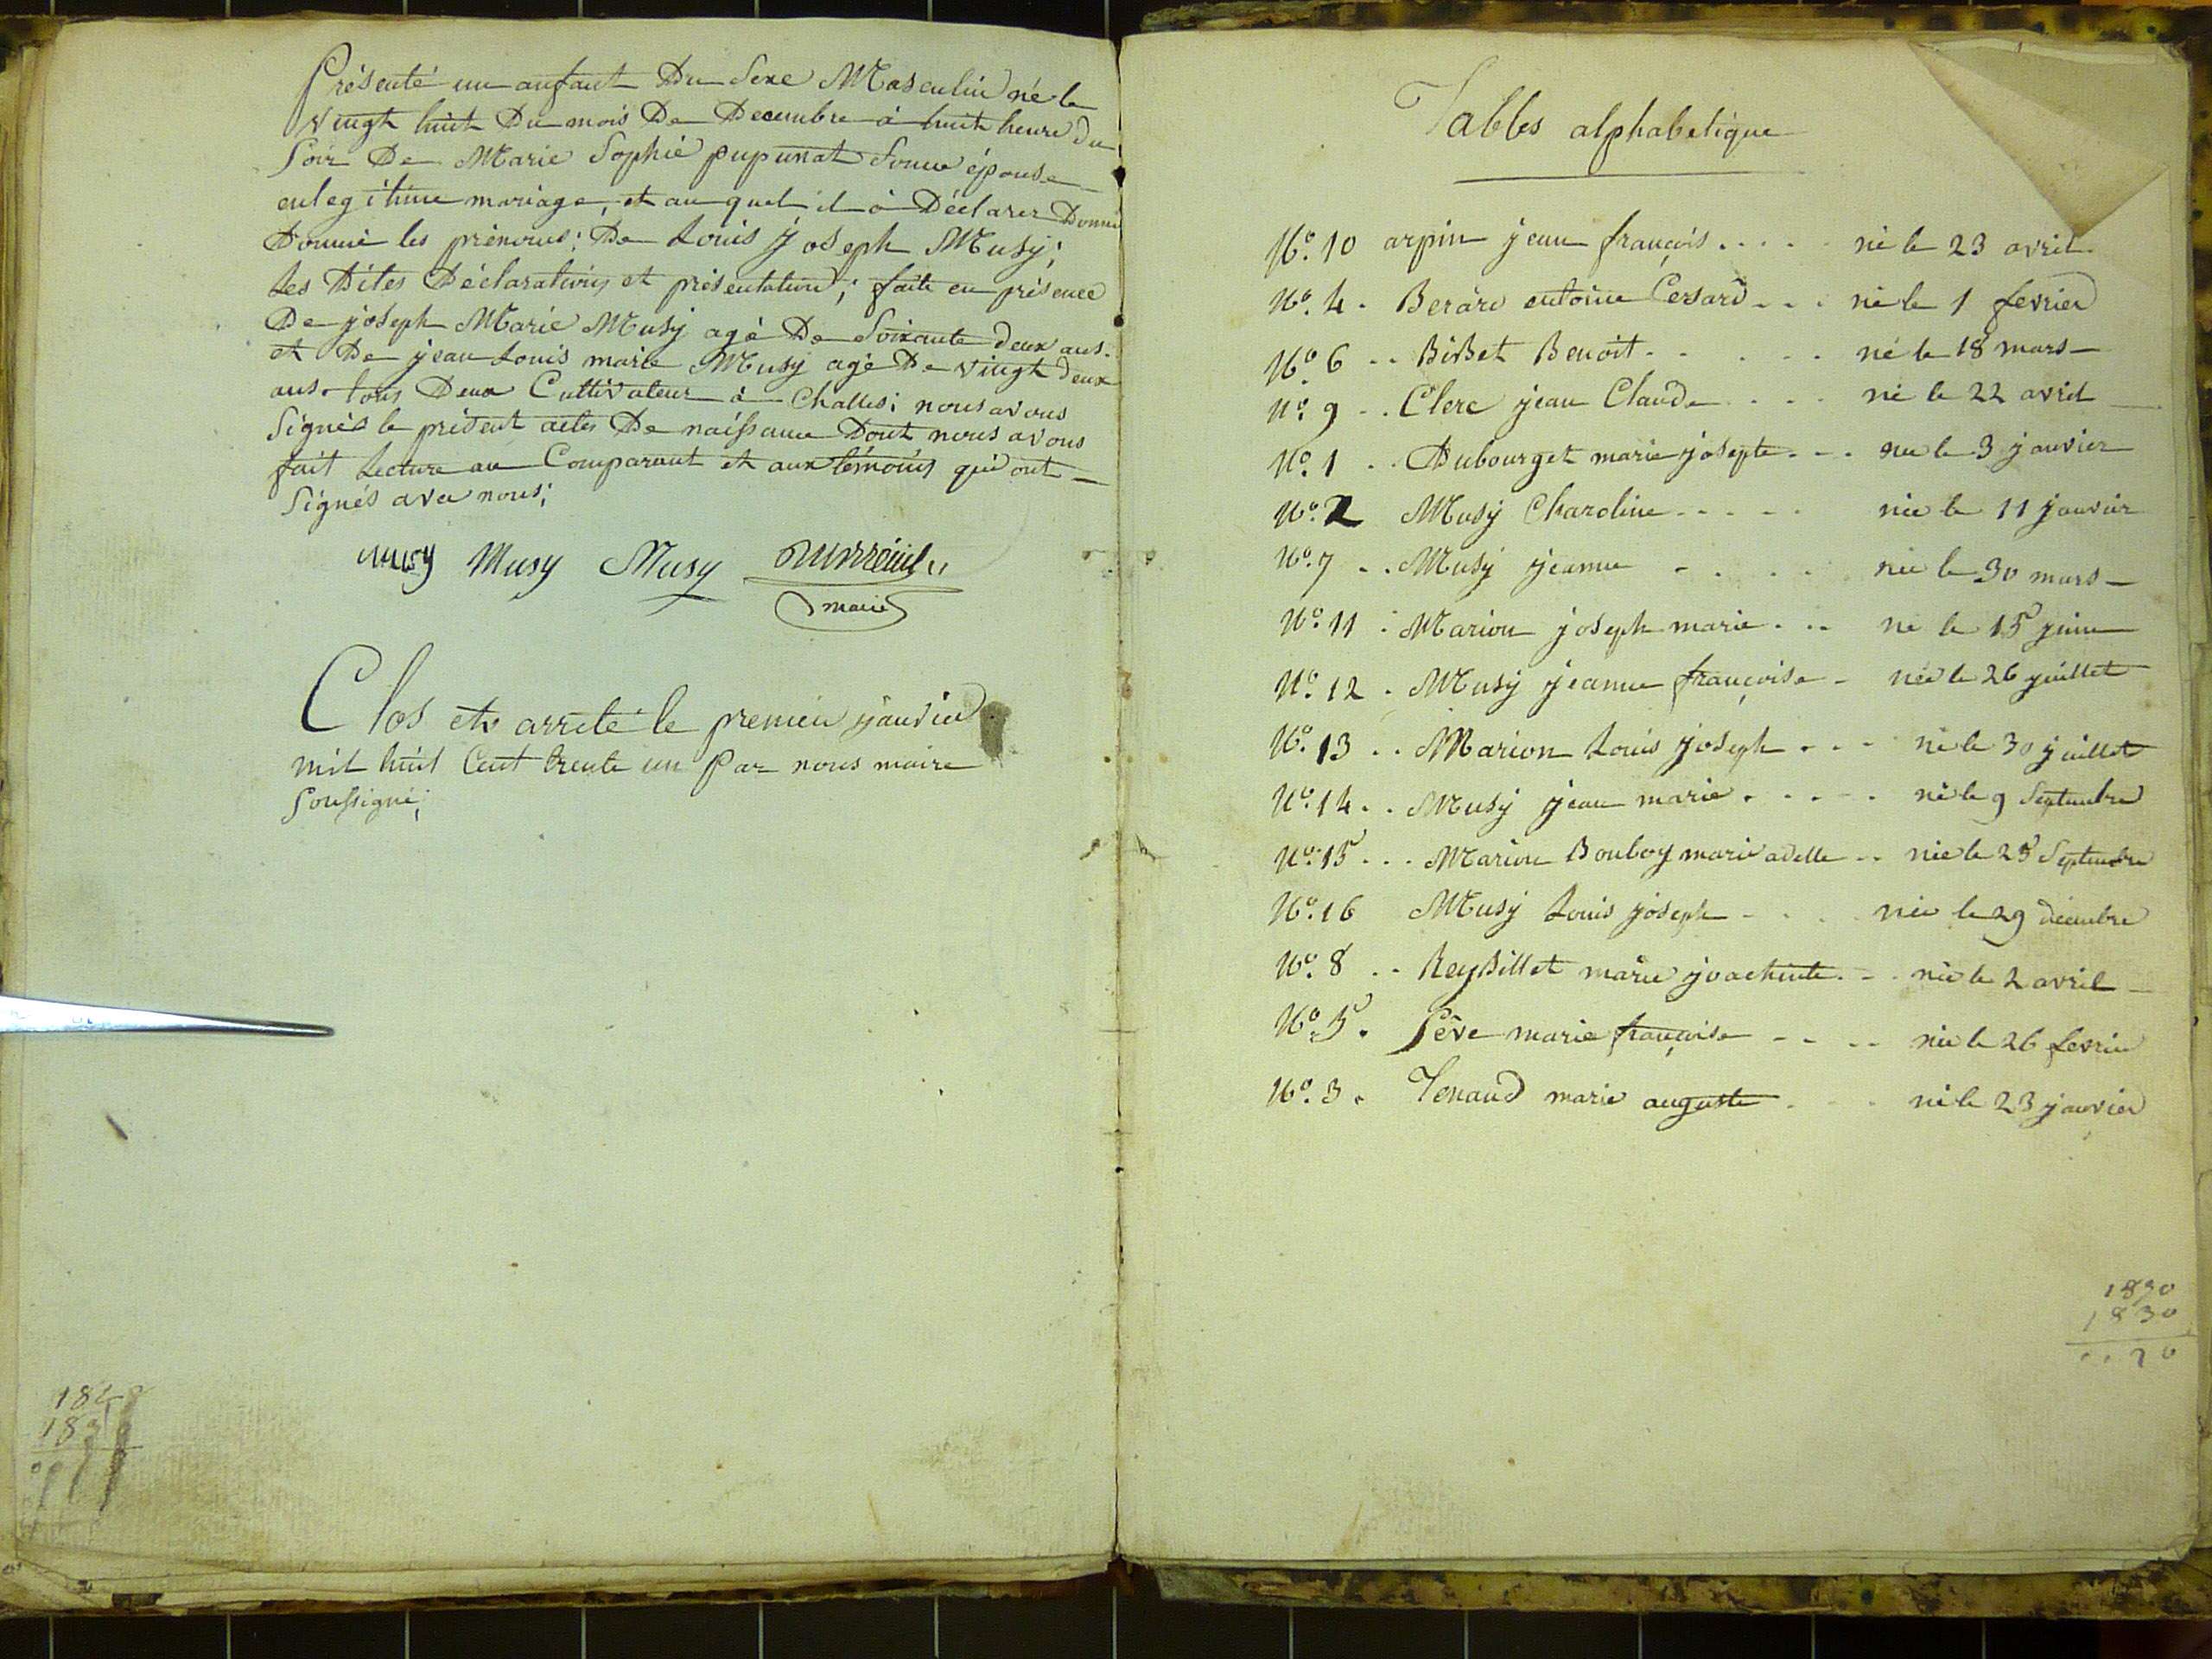 Présenté un anfant Du Sexe Masculin né le
vingt huit Du mois De Decembre à huit heure du
Soir De Marie Sophie pupunat Sonne épouse
enlegitime mariage, et au quel il à Déclarer Donné
Donné les prénoms; De Louis joseph Musy;
Les Dites Déclarations et présentation; faite en présence
De joseph Marie Musy agé De Soixante deux ans.
et De jean Louis marie Musy agé De vingt deux
ans. tous Deux Cultivateur à Challes; nous avons
Signés le présent actes De naissance Dont nous avons
fait Lecture au Comparant et aux témoins qui ont
Signés avec nous;
Musy Musy Musy
maire
Clos et arrêté le premier janvier
mil huit Cent trente un Par nous maire
Soussigné;
183
Tables alphabetique
No. 10 arpin jean françois . . . . . né le 23 avril
No. 4 . Berard entoine Cesard . . . né le 1 fevrier
No. 6 . . BiBet Benoit . . . . . né le 18 mars
No. 9 . . Clerc jean Claude . . . né le 22 avril
No. 1 . . Dubourget marie josepte . . . née le 3 janvier
No. 2 Musy Charoline . . . . . née le 11 janvier
No. 7 . . Musy jeanne . . . . née le 30 mars
No. 11 . Marion joseph marie . . . né le 15 juin
No. 12 . Musy jeanne françoise . née le 26 juillet
No. 13 . . Marion Louis joseph . . . né le 30 juillet
No. 14 . . Musy jean marie . . . . . né le 9 Septembre
No. 15 . . . Marion Bouboy marie adelle . . née le 25 Septembre
No. 16 Musy Louis joseph . . . . née le 29 décembre
No. 8 . . ReyBillet marie joachinte . . . née le 2 avril
No. 5 . Sève marie françoise . . . . née le 26 fevrier
No. 3 . Tenaud marie auguste . . . né le 23 janvier
1830
1830